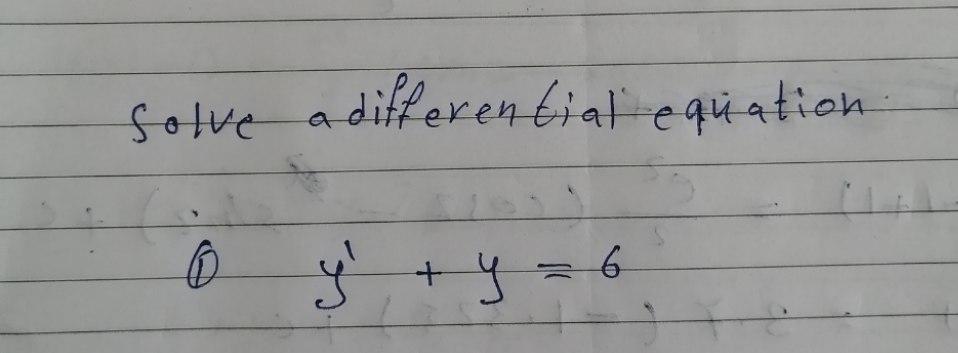 Solve a differential equation
① y' + y = 6